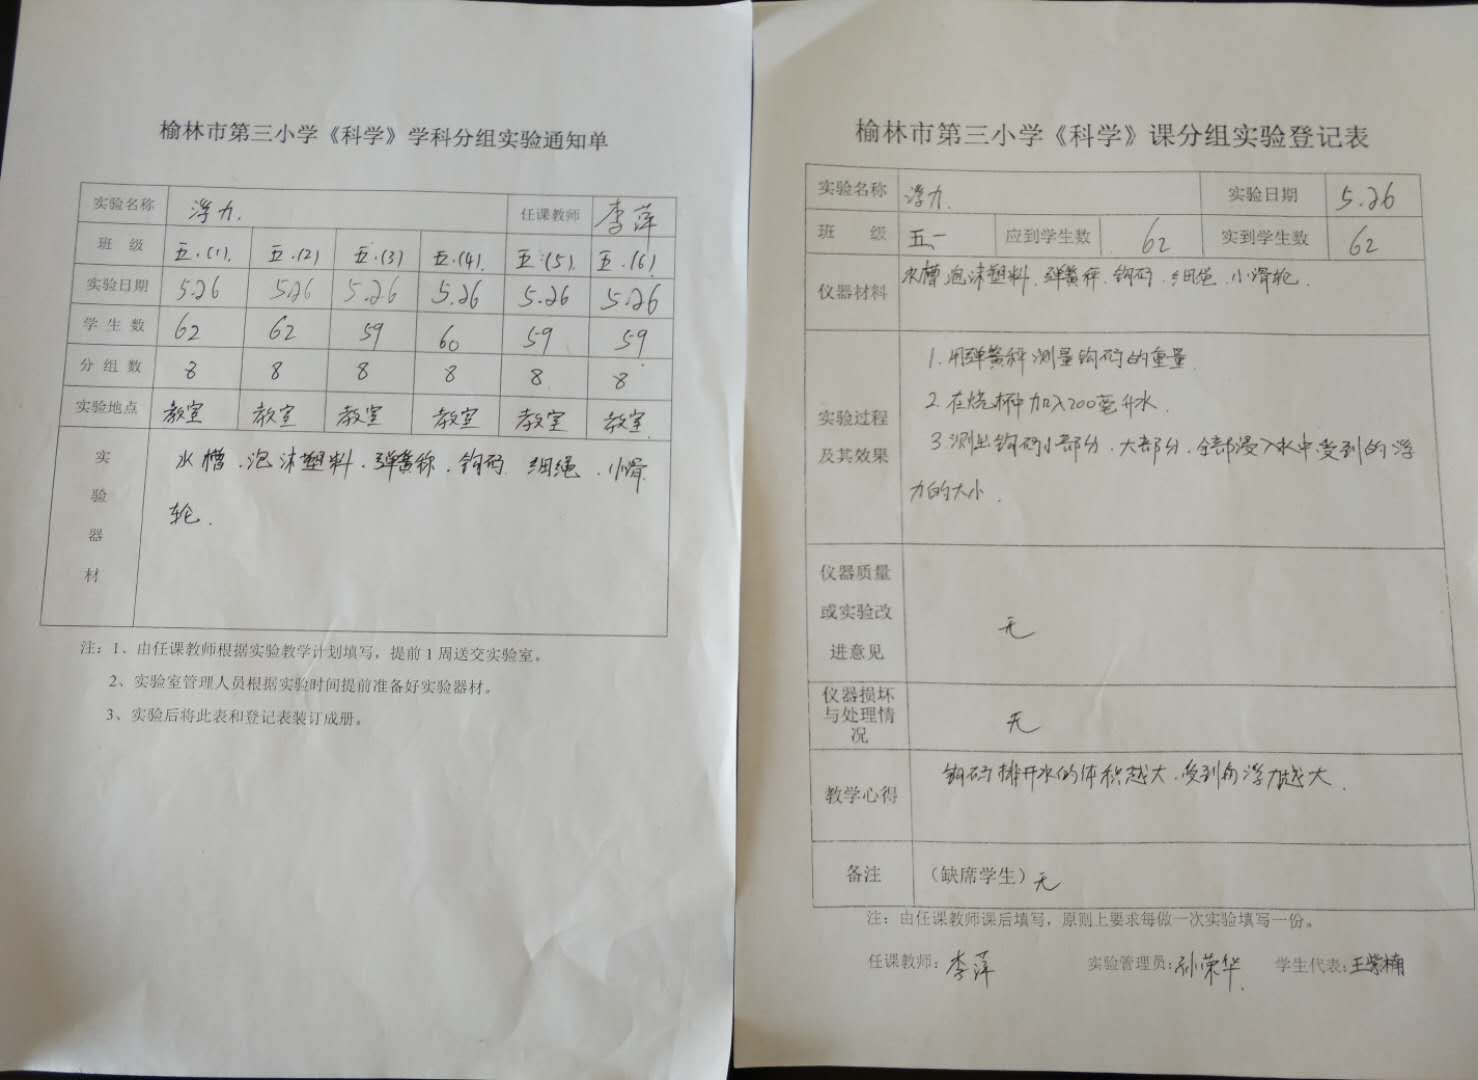 榆林市第三小学《科学》学科分组实验通知单
实验名称 浮力. 任课教师 李萍
班 级 五.(1). 五.(2) 五.(3) 五.(4). 五.(5). 五.(6)
实验日期 5.26 5.26 5.26 5.26 5.26 5.26
学 生 数 62 62 59 60 59 59
分 组 数 8 8 8 8 8. 8
实验地点 教室 教室 教室 教室 教室 教室.
实验器材 水槽.泡沫塑料.弹簧称.钩码 细绳.小滑
轮.
注：1、由任课教师根据实验教学计划填写，提前1周送交实验室。
2、实验室管理人员根据实验时间提前准备好实验器材。
3、实验后将此表和登记表装订成册。
榆林市第三小学《科学》课分组实验登记表
实验名称 浮力. 实验日期 5.26
班 级 五一 应到学生数 62 实到学生数 62
仪器材料 水槽.泡沫塑料.弹簧秤.钩码.细绳.小滑轮.
实验过程
及其效果
1.用弹簧秤测量钩码的重量.
2.在烧杯中加入200毫升水.
3.测出钩码小部分.大部分.全部浸入水中.受到的浮
力的大小.
仪器质量
或实验改
进意见
无
仪器损坏
与处理情
况
无
教学心得 钩码排开水的体积越大.受到的浮力越大.
备注 （缺席学生）无
注：由任课教师课后填写，原则上要求每做一次实验填写一份。
任课教师：李萍 实验管理员：孙荣华. 学生代表：王紫楠